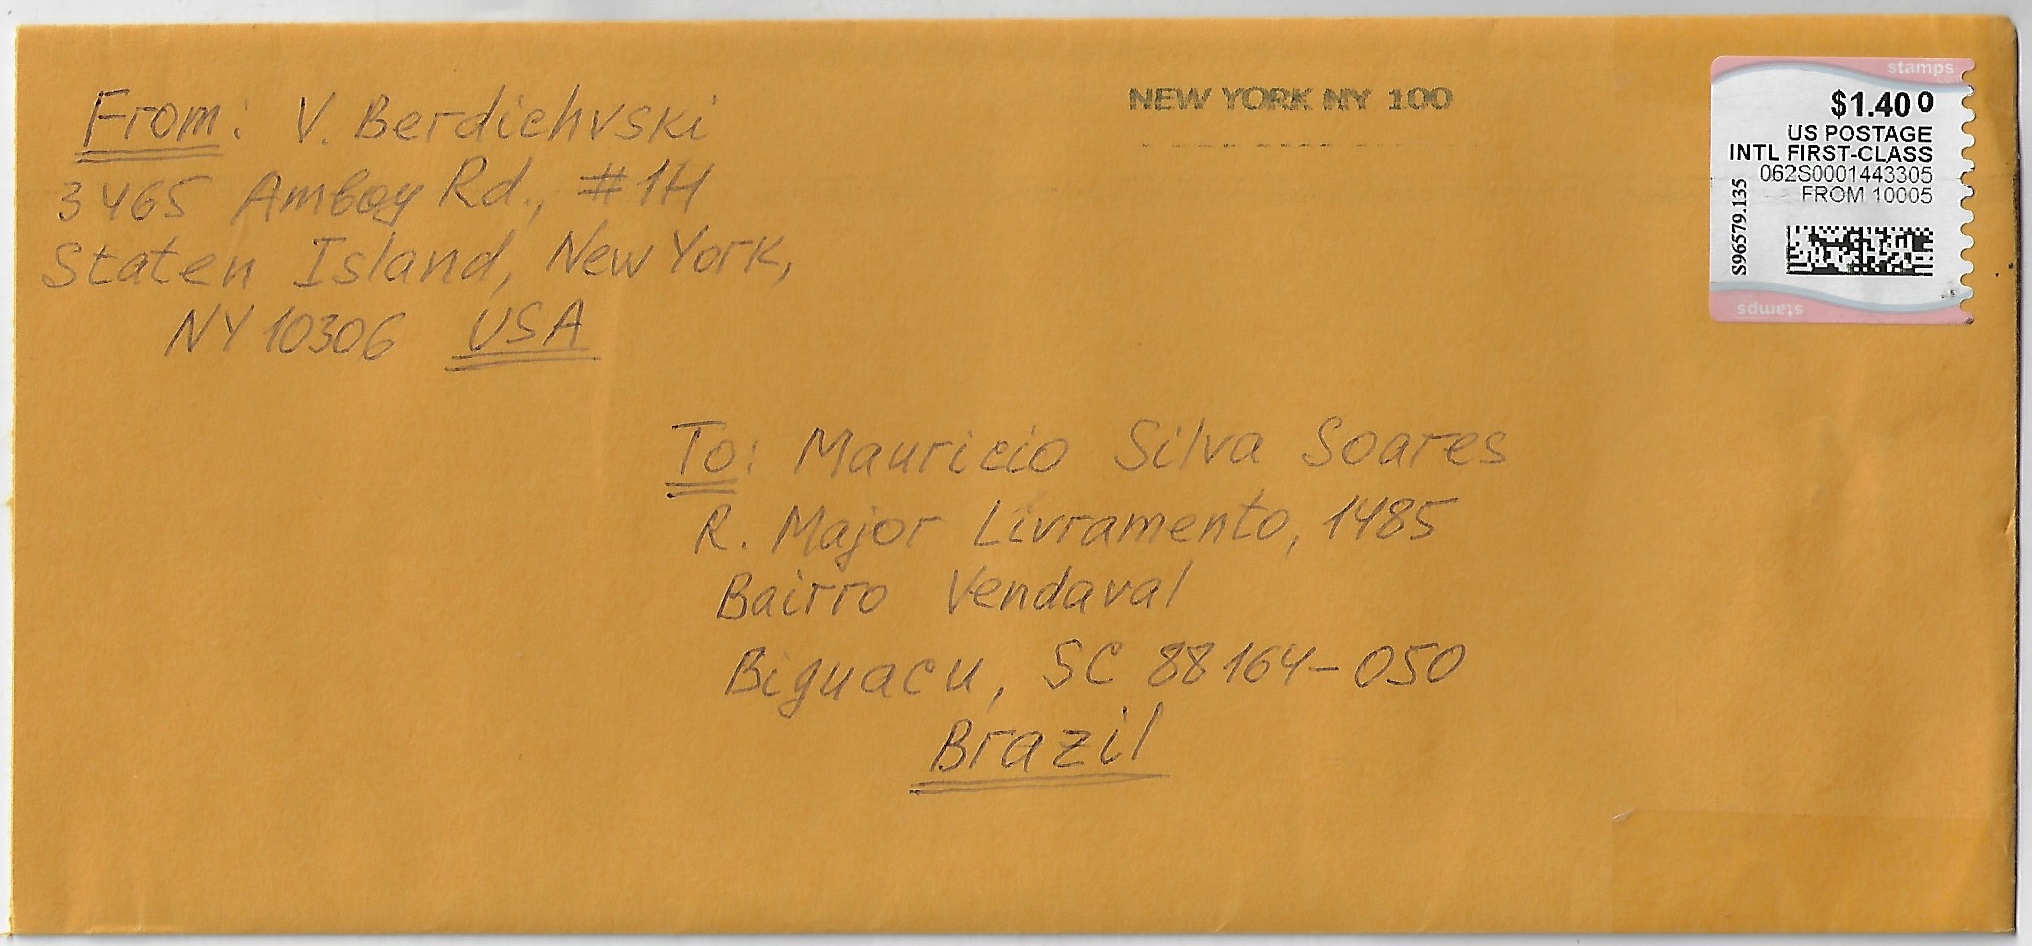 From: V. Berdichvski
3465 Amboy Rd., #1H
Staten Island, New York,
NY 10306 USA
NEW YORK NY 100
stamps
$1.40 0
US POSTAGE
INTL FIRST-CLASS
062S0001443305
FROM 10005
S96579.135
stamps
To: Mauricio Silva Soares
R. Major Livramento, 1485
Bairro Vendaval
Biguacu, SC 88164-050
Brazil